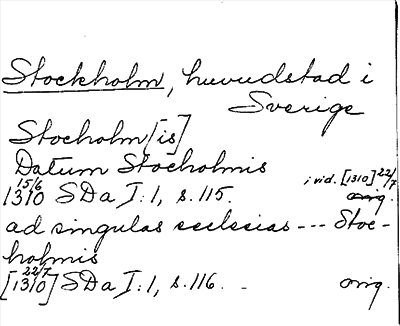 Stockholm, huvudstad i
Sverige
Stocholm[is]
Datum Stocholmis
15/6 1310 SDa I:1, s.115. i vid. [1310] 22/7 orig.
ad singulas ecclesias --- Stoc-
holmis
[22/7 1310] SDa I:1, s.116. - orig.